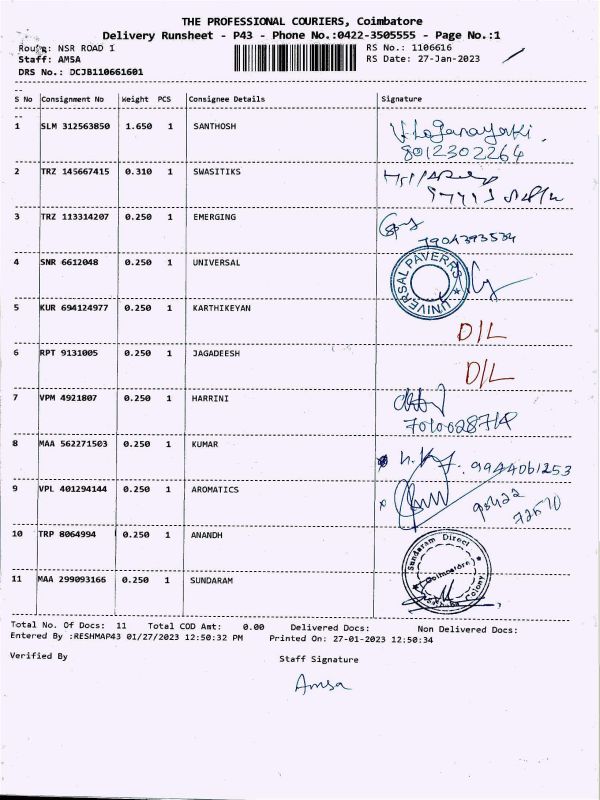 THE PROFESSIONAL COURIERS, Coimbatore
Delivery Runsheet - P43 - Phone No.:0422-3505555 - Page No.:1
Route: NSR ROAD I RS No.: 1106616
Staff: AMSA RS Date: 27-Jan-2023
DRS No.: DCJB110661601
S No Consignment No Weight PCS Consignee Details Signature
1 SLM 312563850 1.650 1 SANTHOSH
8012302264
2 TRZ 145667415 0.310 1 SWASITIKS
3 TRZ 113314207 0.250 1 EMERGING
7904393534
4 SNR 6612048 0.250 1 UNIVERSAL UNIVERSAL PAVERRS
5 KUR 694124977 0.250 1 KARTHIKEYAN
D/L
6 RPT 9131005 0.250 1 JAGADEESH
D/L
7 VPM 4921807 0.250 1 HARRINI
8 MAA 562271503 0.250 1 KUMAR
9944061253
9 VPL 401294144 0.250 1 AROMATICS
10 TRP 8064994 0.250 1 ANANDH
Sundaram Direct
Coimbatore
Colony
11 MAA 299093166 0.250 1 SUNDARAM
Total No. Of Docs: 11 Total COD Amt: 0.00 Delivered Docs: Non Delivered Docs:
Entered By :RESHMAP43 01/27/2023 12:50:32 PM Printed On: 27-01-2023 12:50:34
Verified By Staff Signature
Amsa